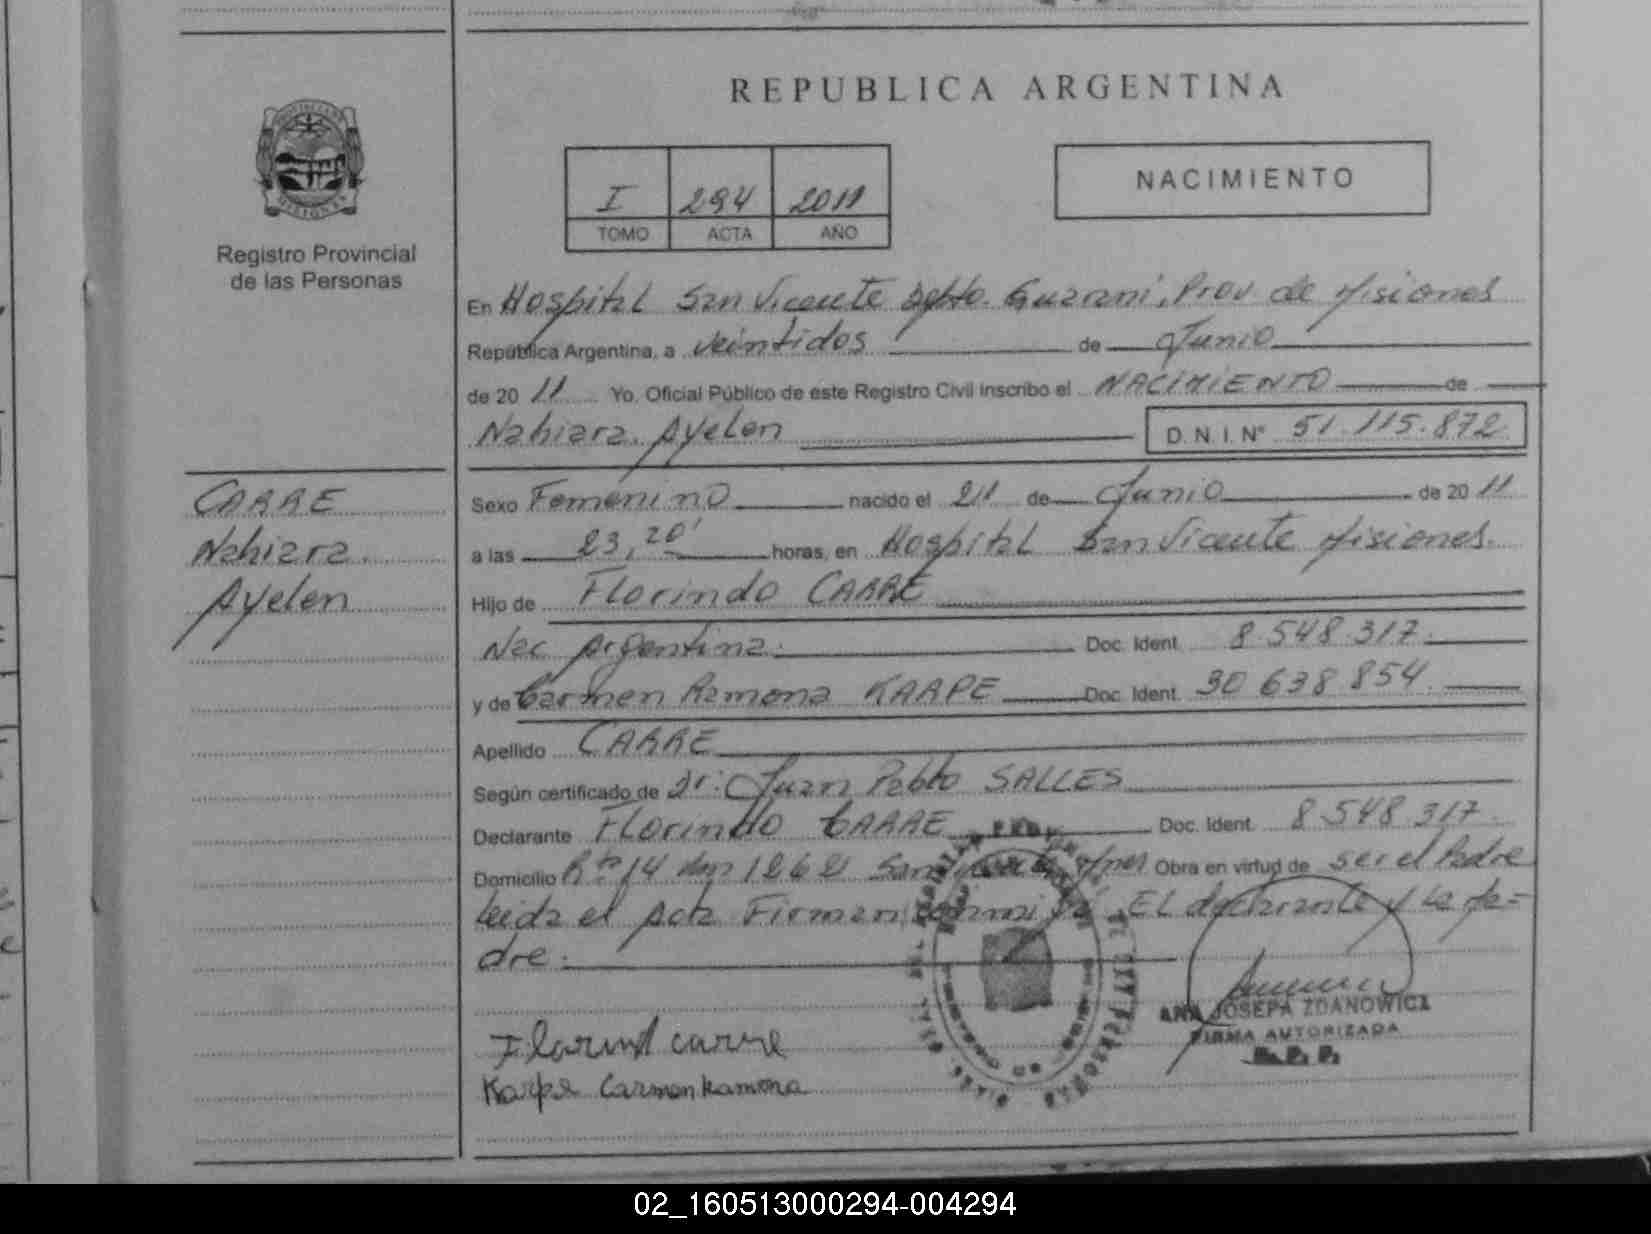 REPUBLICA ARGENTINA
I 294 2011
TOMO ACTA AÑO
NACIMIENTO
Registro Provincial
de las Personas
En Hospital San Vicente Dpto. Guarani, Prov de Misiones
República Argentina, a veintidos de Junio
de 20 11 Yo, Oficial Público de este Registro Civil Inscribo el NACIMIENTO de
Nahiara Ayelen D.N.I. Nº 51.115.872
CARRE
Nahiara
Ayelen
Sexo Femenino nacido el 21 de Junio de 20 11
a las 23,20' horas, en Hospital San Vicente Misiones.
Hijo de Florindo CARRE
Nac Argentina. Doc. Ident. 8.548.317.
y de Carmen Ramona KARPE Doc. Ident. 30 638 854.
Apellido CARRE
Según certificado de Dr: Juan Pablo SALLES
Declarante Florindo CARRE Doc. Ident. 8.548.317.
Domicilio Rta 14 km 1262 San Obra en virtud de ser el Padre
Leida el Acta Firman El declarante y la Ma=
dre.
Florind carre
Karpe Carmen Ramona
ANA JOSEFA ZDANOWICZ
FIRMA AUTORIZADA
R. P. P.
02_160513000294-004294